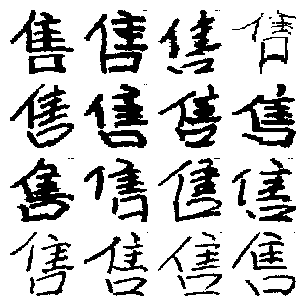 售售售售
售售售售
售售售售
售售售售